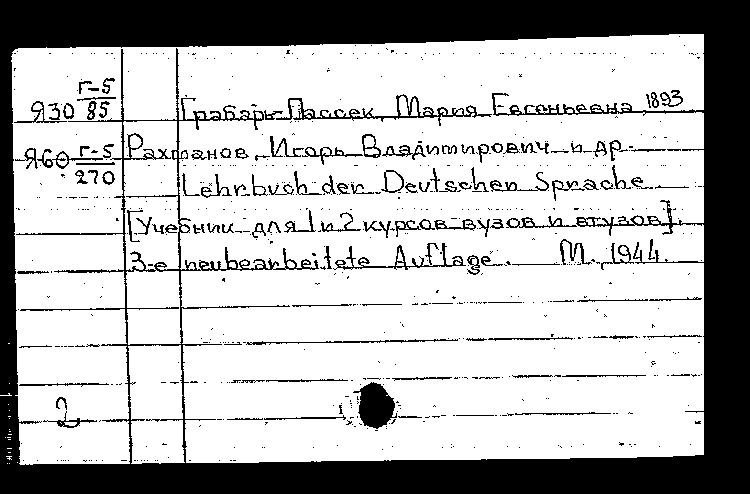 Я30 Г-5/85
Грабарь-Пассек, Мария Евгеньевна, 1893
Я60 Г-5/270
Рахманов, Игорь Владимирович и др.
Lehrbuch der Deutschen Sprache.
[Учебник для 1 и 2 курсов вузов и втузов].
3-е neubearbeitete Auflage. М., 1944.
2